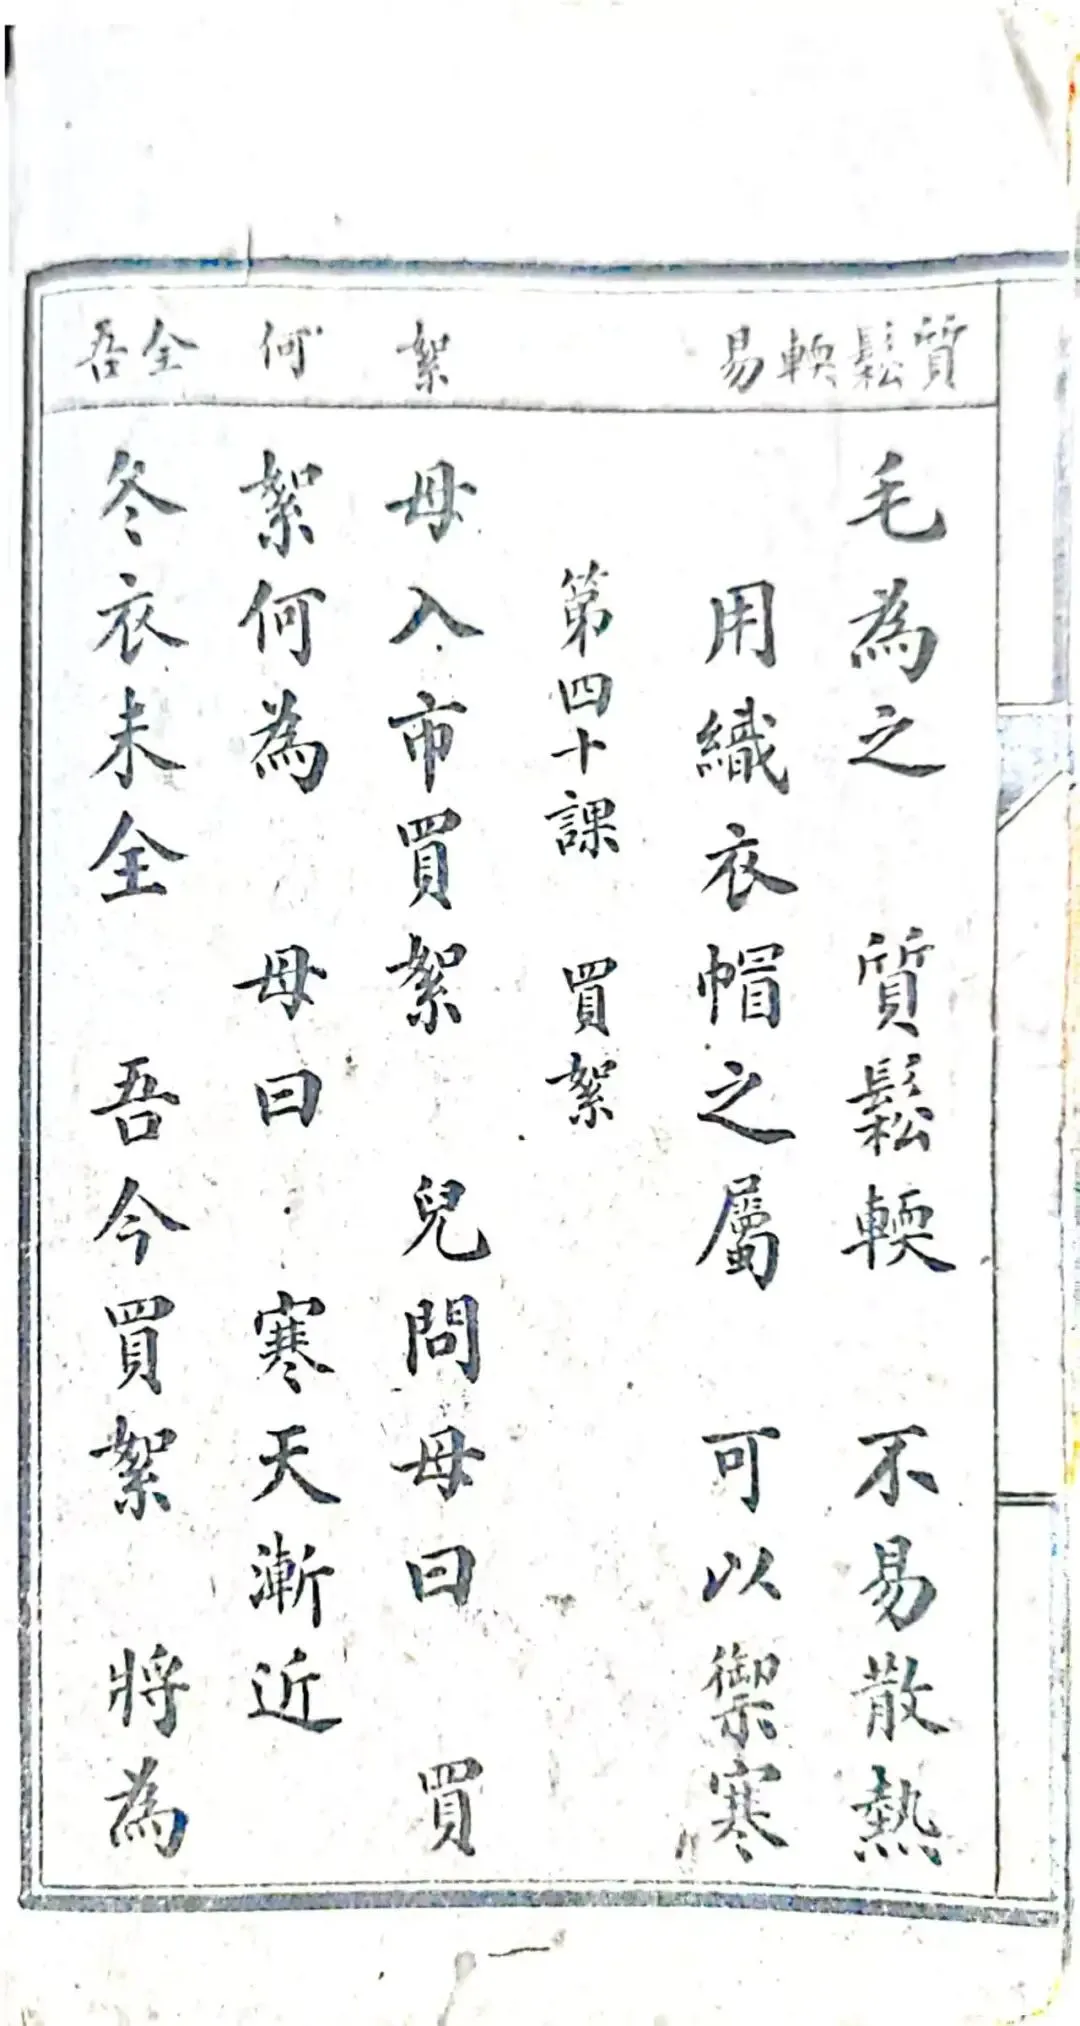 質鬆輭易
絮
何
全吾
毛為之　質鬆輭　不易散熱
用織衣帽之屬　可以禦寒
第四十課　買絮
母入市買絮　兒問母曰　買
絮何為　母曰　寒天漸近
冬衣未全　吾今買絮　將為
一